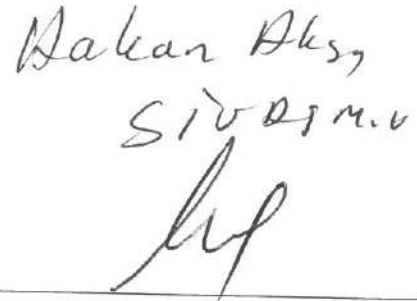 Hakan Aksu
SİVAS M.V